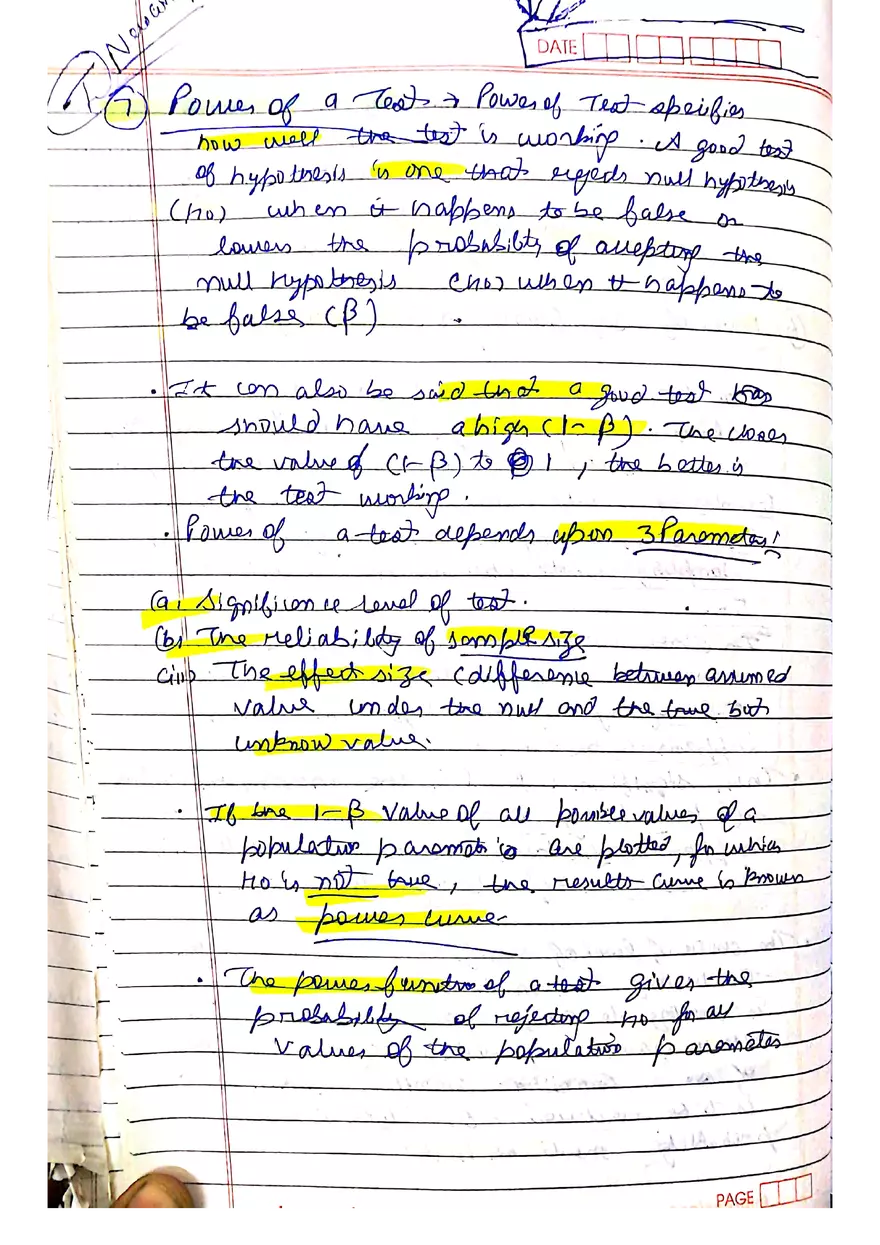 DATE
7 Power of a Test → Power of Test specifies
how well the test is working. A good test
of hypothesis is one that rejects null hypothesis
(Ho) when it happens to be false or
lowers the probability of accepting the
null hypothesis (Ho) when it happens to
be false (β)
• It can also be said that a good test
should have a high (1-β). The closer
the value of (1-β) to 1, the better is
the test working.
• Power of a test depends upon 3 Parameter:
(a) Significance level of test.
(b) The reliability of sample size
(iii) The effect size (difference between assumed
value under the null and the true but
unknow value.
• If the 1-β value of all possible values of a
population parameter are plotted, for which
Ho is not true, the results curve is known
as power curve
• The power function of a test gives the
probability of rejecting Ho for all
values of the population parameter
PAGE